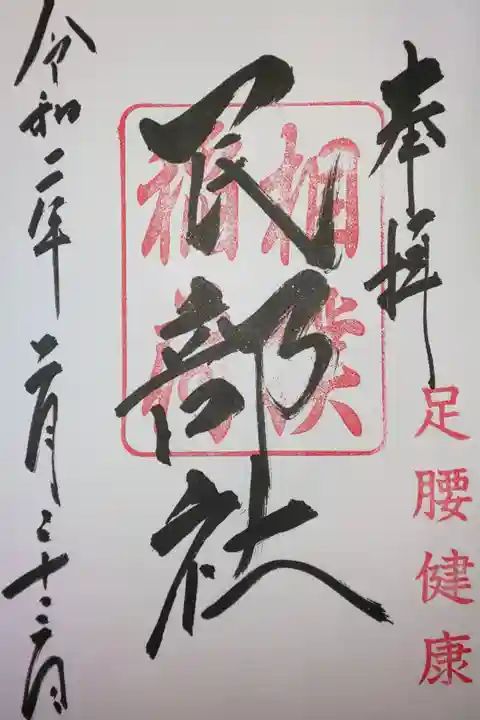 奉拝
足腰健康
相撲
稲荷
民部社
令和二年二月二十二日